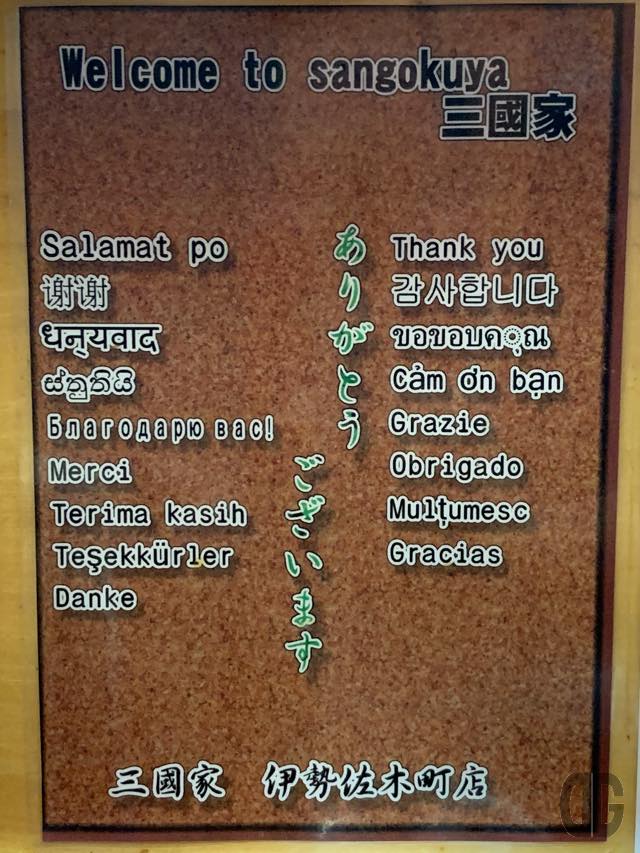 Welcome to sangokuya
三國家
Salamat po
谢谢
धन्‌यवाद
ස්තුතියි
Благодарю вас!
Merci
Terima kasih
Teşekkürler
Danke
ありがとう
ございます
Thank you
감사합니다
ขอขอบค◌ุณ
Cảm ơn bạn
Grazie
Obrigado
Mulțumesc
Gracias
三國家 伊勢佐木町店